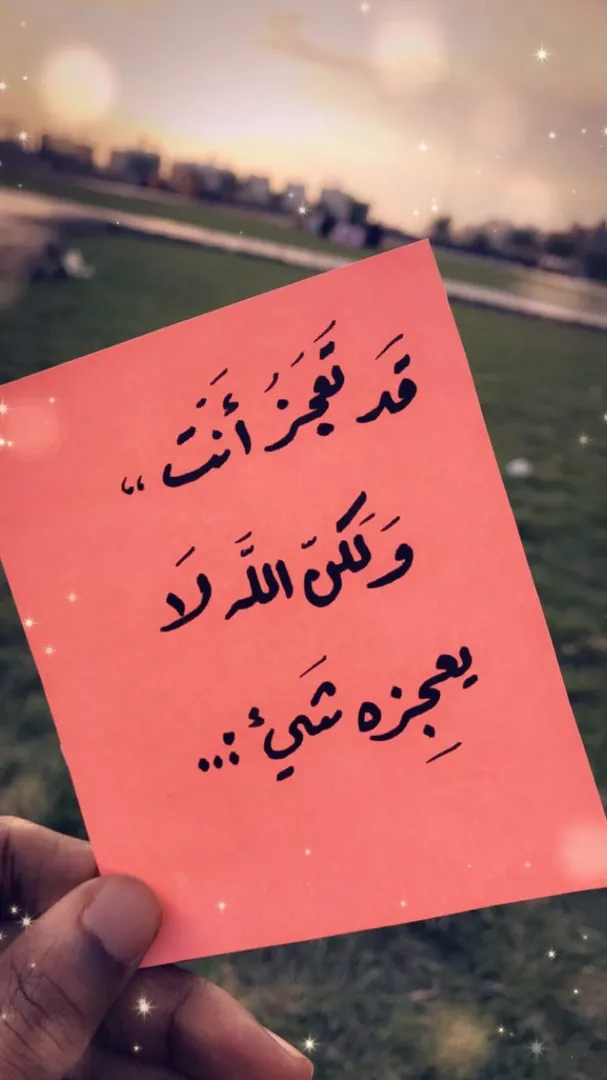 قَد تَعجَزُ أَنَتَ ،،
وَلَكنّ اللَّه لَا
يعجِزه شَيئ :...